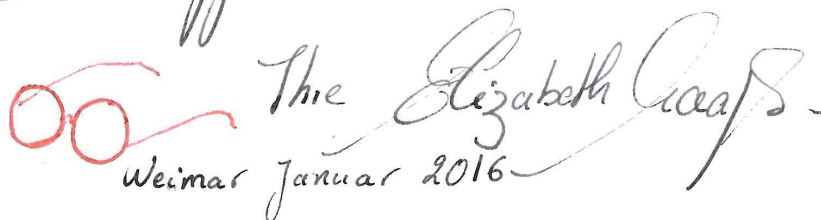 Ihre Elizabeth
Weimar Januar 2016